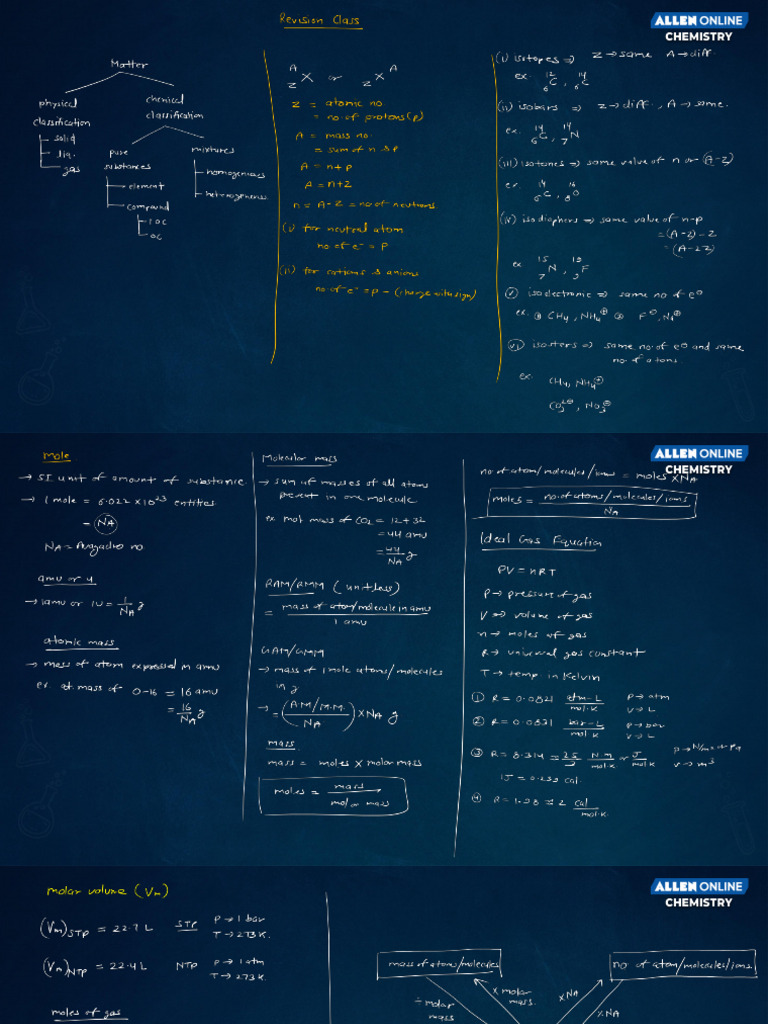 Revision Class
ALLEN ONLINE
CHEMISTRY
Matter
physical classification
solid
liq.
gas
chemical classification
pure substances
element
compound
IOC
OC
mixtures
homogeneous
heterogeneous
A Z X or Z X A
Z = atomic no.
= no. of protons (p)
A = mass no.
= sum of n & p
A = n+p
A = n+Z
n = A-Z = no of neutrons
(i) for neutral atom
no. of e⁻ = p
(ii) for cations & anions
no. of e⁻ = p - (charge with sign)
(i) isotopes ⇒ Z → same A → diff.
ex. ¹²₆C, ¹⁴₆C
(ii) isobars ⇒ Z → diff., A → same.
ex. ¹⁴₆C, ¹⁴₇N
(iii) isotones ⇒ same value of n or (A-Z)
ex. ¹⁴₆C, ¹⁶₈O
(iv) isodiaphers ⇒ same value of n-p
= (A-Z) - Z
= (A-2Z)
ex ¹⁵₇N, ¹⁹₉F
(v) isoelectronic ⇒ same no of e⊖
ex. CH₄, NH₄⊕ F⊖, Na⊕
(vi) isosters ⇒ same no. of e⊖ and same
no. of atoms
ex. CH₄, NH₄⊕
CO₃²⊖, NO₃⊖
Mole
→ SI unit of amount of substance
→ 1 mole = 6.022 × 10²³ entities
= NA
NA = Avogadro no
amu or u
→ 1amu or 1u = 1/NA g
atomic mass
→ mass of atom expressed in amu
ex. at. mass of O-16 = 16 amu
= 16/NA g
Molecular mass
→ sum of masses of all atoms
present in one molecule
ex mol. mass of CO₂ = 12 + 32
= 44 amu
= 44/NA g
RAM/RMM (unitless)
= mass of atom/molecule in amu / 1 amu
GAM/GMM
→ mass of 1 mole atoms/molecules
in g
→ = (AM/M.M. / NA) × NA g
mass
mass = moles × molar mass
moles = mass / molar mass
ALLEN ONLINE
CHEMISTRY
no of atom/molecules/ions = moles × NA
moles = no. of atoms/molecules/ions / NA
Ideal Gas Equation
PV = nRT
P → pressure of gas
V → volume of gas
n → moles of gas
R → universal gas constant
T → temp in Kelvin
① R = 0.0821 atm-L / mol.K P → atm V → L
② R = 0.0831 bar-L / mol.K P → bar V → L
③ R = 8.314 = 25/3 N.m / mol.K or J / mol.K P → N/m² or Pa V → m³
1J = 0.239 cal.
④ R = 1.98 ≈ 2 cal / mol.K
ALLEN ONLINE
CHEMISTRY
molar volume (Vm)
(Vm)STP = 22.7 L STP P → 1 bar
T → 273 K.
(Vm)NTP = 22.4 L NTP P → 1 atm
T → 273 K.
moles of gas
mass of atoms/molecules
no of atom/molecules/ions
÷ molar mass
× molar mass.
× NA
× NA